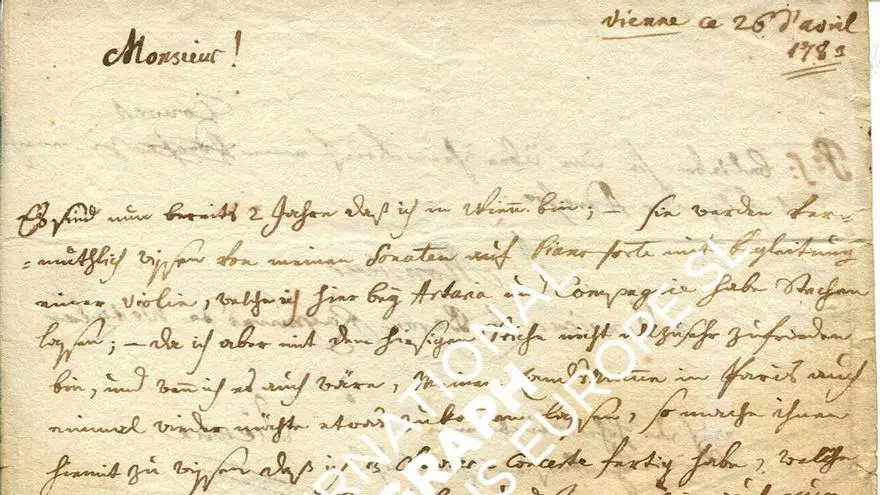 Vienne ce 26 d'avril
1783
Monsieur!
P: S:
Es sind nun bereits 2 Jahre daß ich in Wienn bin; – sie werden ver=
=muthlich wissen von meinen Sonaten auf Piano forte mit begleitung
einer Violin, welche ich hier bey Artaria und Compagnie habe Stechen
lassen; – da ich aber mit dem hiesigen Stiche nicht allzusehr zufrieden
bin, und wenn ich es auch wäre, Meinen Landsmann in Paris auch
einmal wieder möchte etwas zukommen lassen, so mache ihnen
hiemit zu wissen daß ich 3 Clavier-Concerte fertig habe, welche
INTERNATIONAL
AUTOGRAPH
EUROPE SL